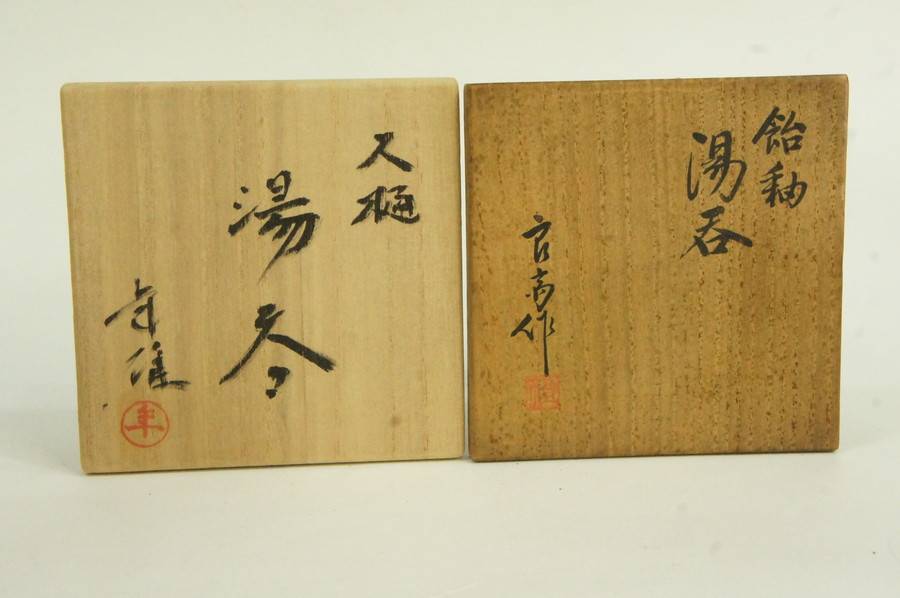 大樋
湯呑
年雄
年
飴釉
湯呑
作